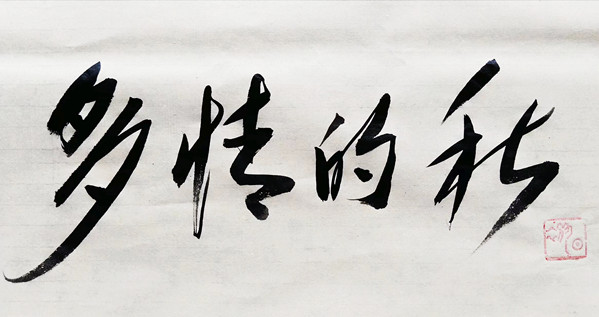 多情的秋